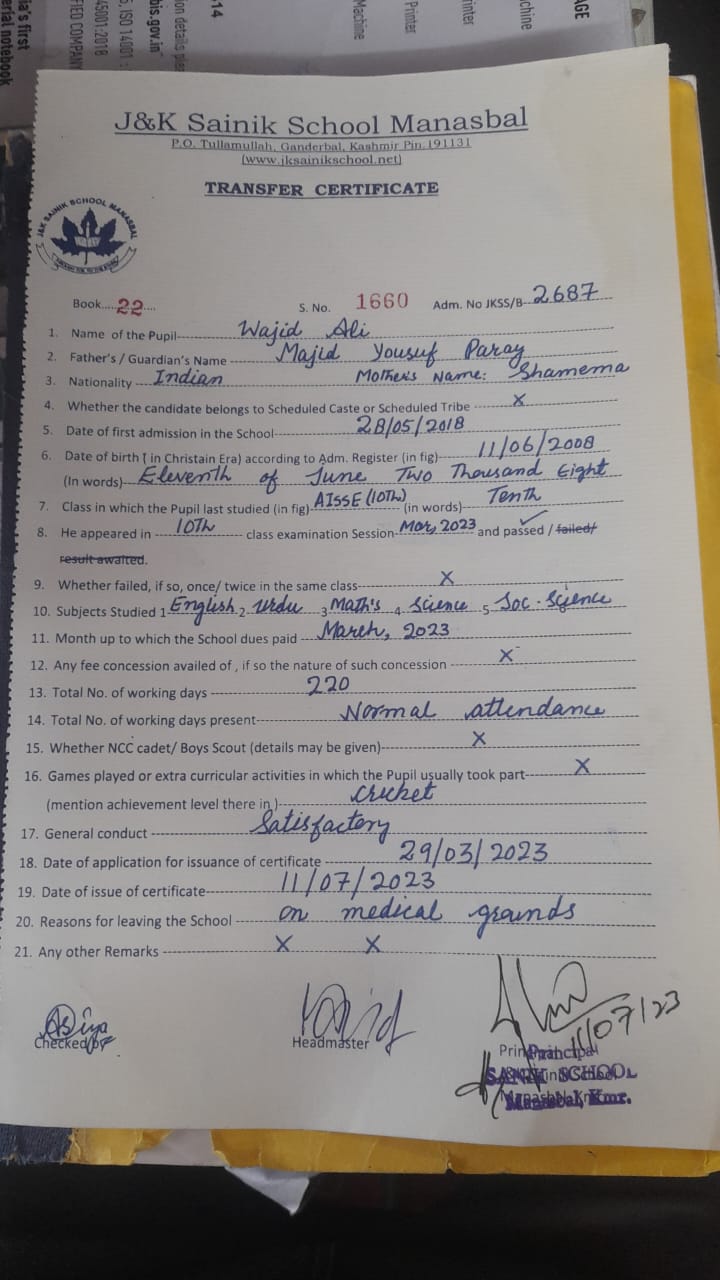 ia's first
erial notebook
FIED COMPANY
45001:2018
5, ISO 14001 :
bis.gov.in
ion details plea
14
Machine
Printer
rinter
chine
AGE
J&K Sainik School Manasbal
P.O. Tullamullah, Ganderbal, Kashmir Pin. 191131
(www.jksainikschool.net)
TRANSFER CERTIFICATE
J&K SAINIK SCHOOL MANASBAL
Book....22.... S. No. 1660 Adm. No JKSS/B--2687
1. Name of the Pupil Wajid Ali
2. Father's / Guardian's Name Majid Yousuf Paray
3. Nationality Indian Mother's Name: Shameema
4. Whether the candidate belongs to Scheduled Caste or Scheduled Tribe X
5. Date of first admission in the School 28/05/2018
6. Date of birth [ in Christain Era) according to Adm. Register (in fig) 11/06/2008
(In words) Eleventh of June Two Thousand Eight
7. Class in which the Pupil last studied (in fig) AISSE (10Th) (in words) Tenth
8. He appeared in 10Th class examination Session Mar, 2023 and passed / failed/
result awaited.
9. Whether failed, if so, once/ twice in the same class X
10. Subjects Studied 1 English 2 Urdu 3 Math's 4 Science 5 Soc. Science
11. Month up to which the School dues paid March, 2023
12. Any fee concession availed of , if so the nature of such concession X
13. Total No. of working days 220
14. Total No. of working days present Normal attendance
15. Whether NCC cadet/ Boys Scout (details may be given) X
16. Games played or extra curricular activities in which the Pupil usually took part X
(mention achievement level there in ) Cricket
17. General conduct Satisfactory
18. Date of application for issuance of certificate 29/03/2023
19. Date of issue of certificate 11/07/2023
20. Reasons for leaving the School on medical grounds
21. Any other Remarks X X
11/07/23
Checked by Headmaster Principal
Principal
SAINIK SCHOOL
Manasbal, Kmr.